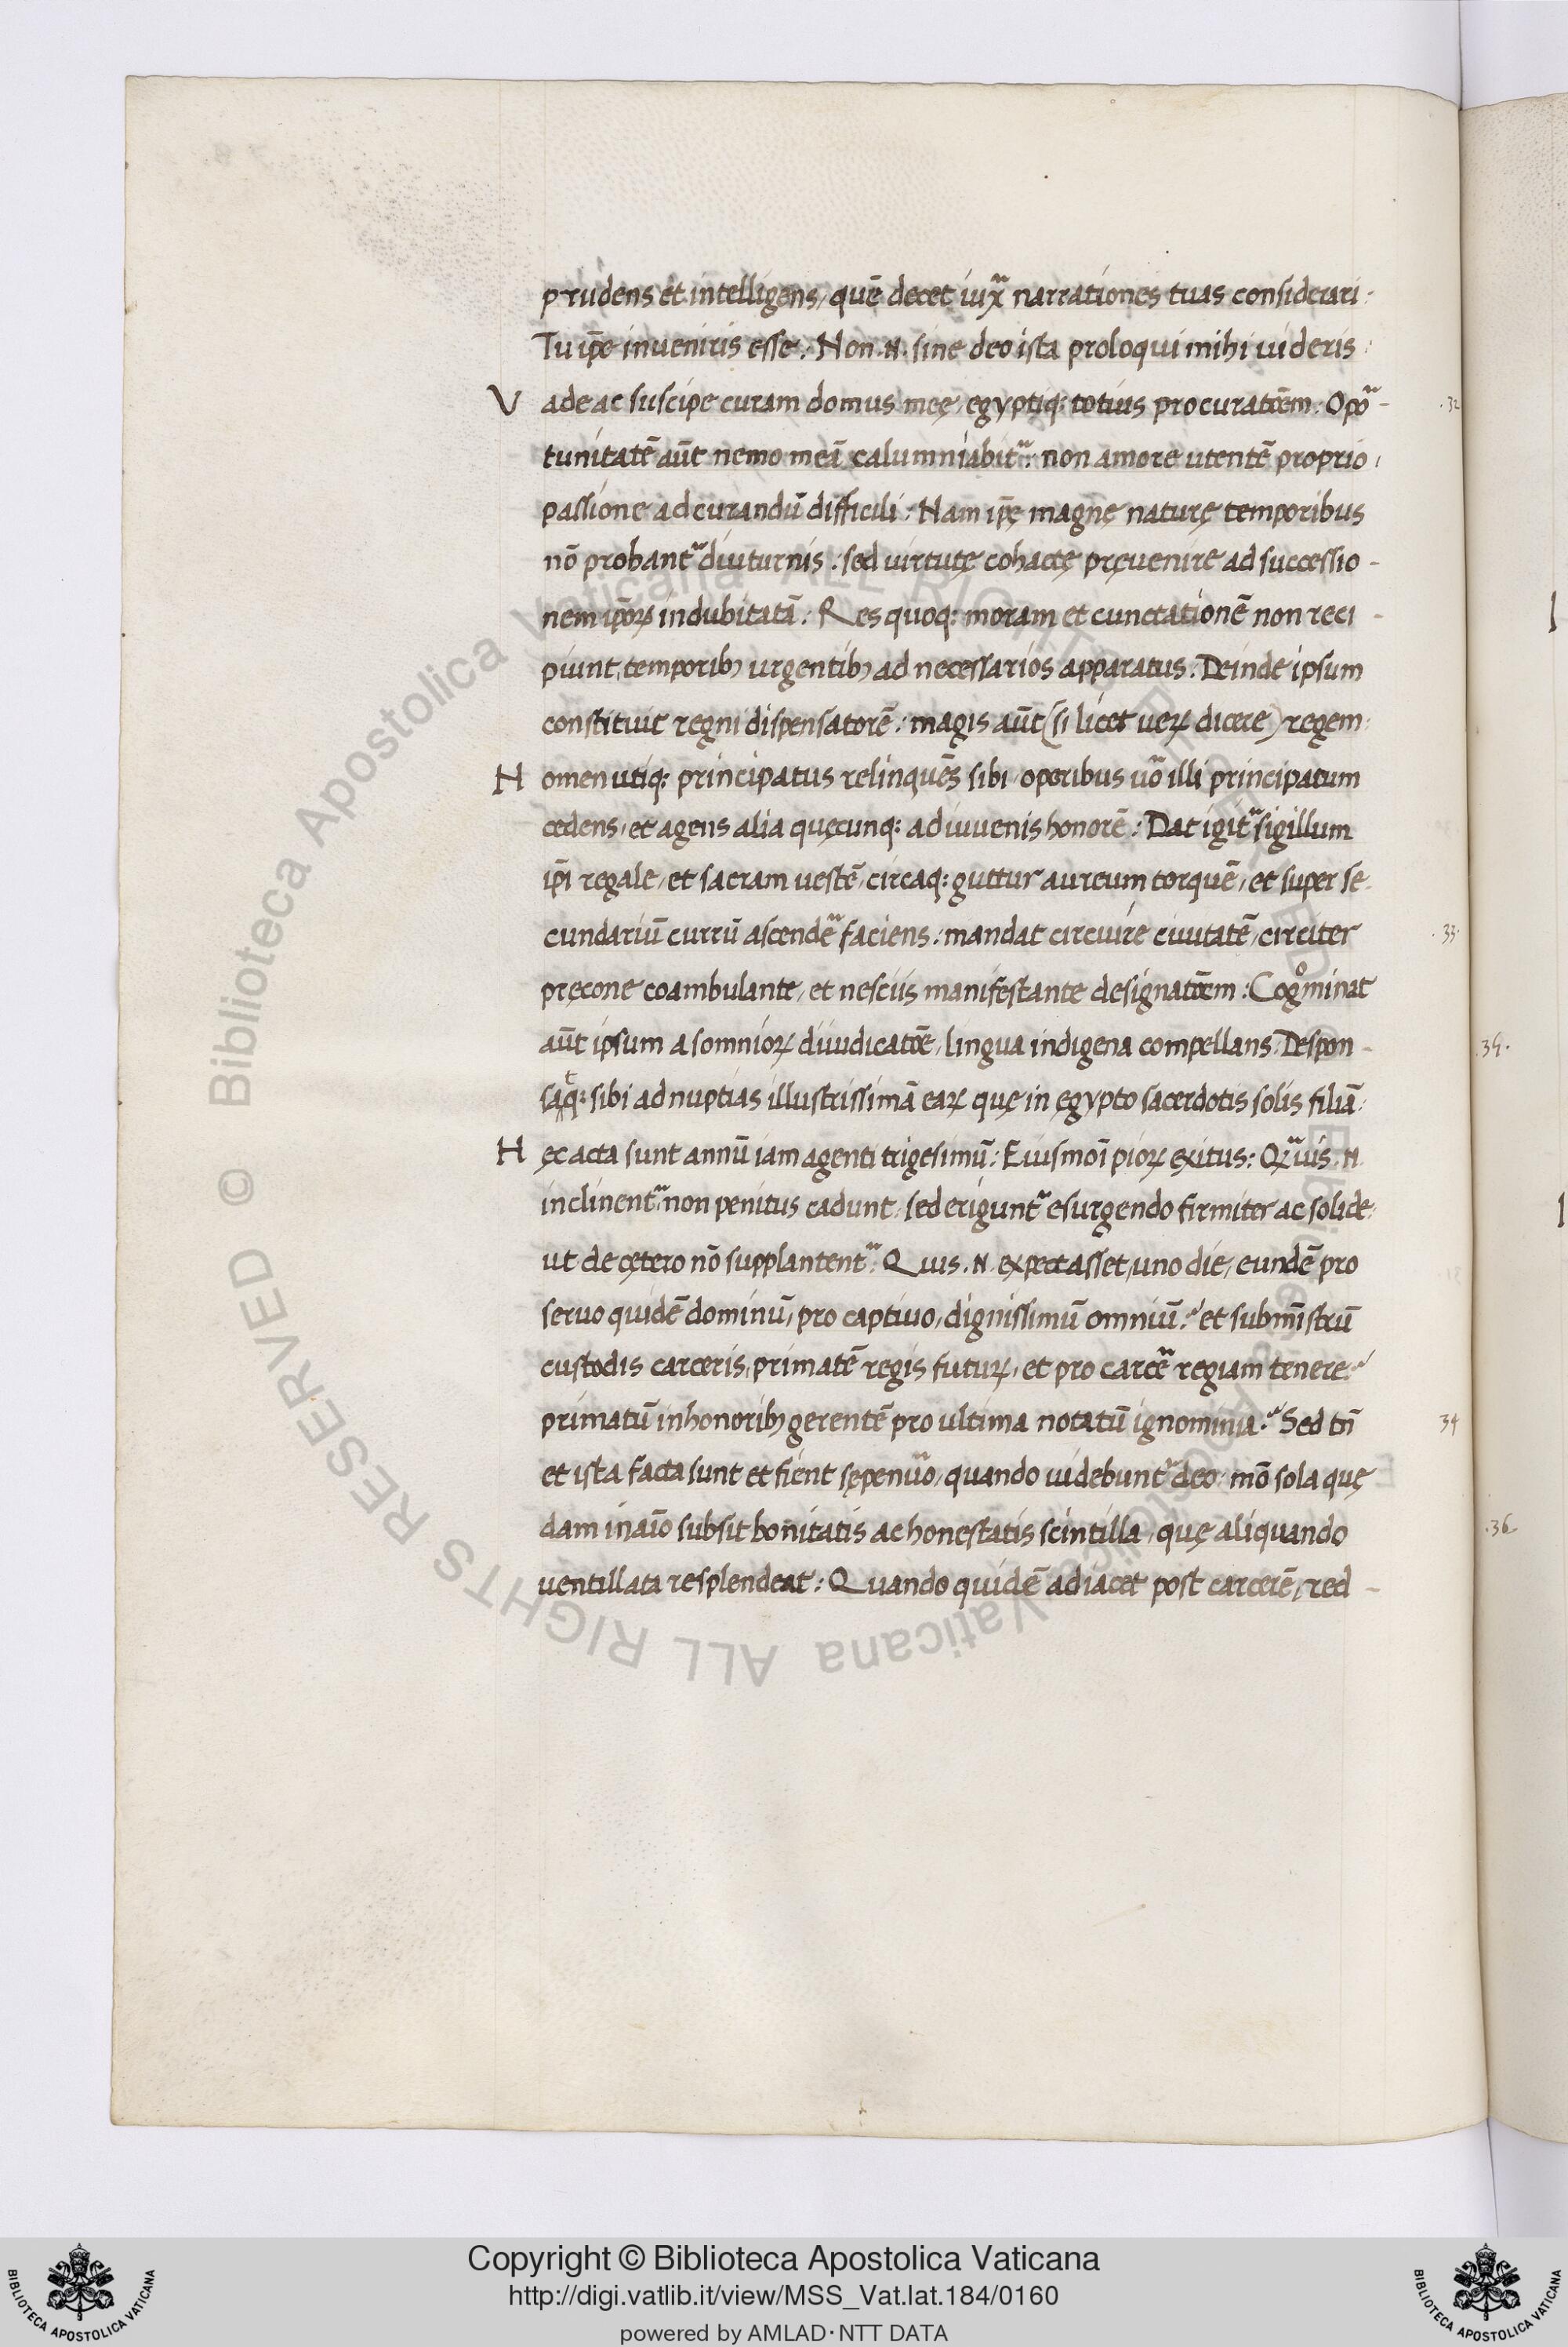 prudens et intelligens, quē decet iuxᷓ narrationes tuas considerari:
Tu ip̄e inueniris esse: Non .N. sine deo ista proloqui mihi uideris:
V ade ac suscipe curam domus meę, egyptiq: totius procuratōem: Opoᷓ- .32
tunitatē aūt nemo meā calumniabitᷓ: non amore utentē proprio,
passione ad curandū difficili: Nam ip̄ę magnę naturę temporibus
nō probantᷓ diuturnis: sed uirtutę cohactę pręuenire ad successio-
nem ip̄oꝝ indubitatā: Res quoq: moram et cunctationē non reci-
piunt, temporibꝫ urgentibꝫ ad necessarios apparatus: Deinde ipsum
constituit regni dispensatorē: magis aūt (si licet ueꝝ dicere) regem:
N omen utiq: principatus relinquēs sibi, operibus uᷓo illi principatum
cedens, et agens alia quęcunq: ad iuuenis honorē: Dat igitᷓ sigillum
ip̄i regale, et sacram uestē, circaq: guttur aureum torquē, et super se-
cundariū currū ascendeᷓ faciens: mandat circuire ciuitatē, circiter .33.
pręcone coambulante, et nesciis manifestante designatōem: Cogͦminat
aūt ipsum a somnioꝝ diiudicatōe, lingua indigena compellans: Despon- .35.
saᵗq: sibi ad nuptias illustrissimā eaꝝ quę in ęgypto sacerdotis solis filiā:
H ęc acta sunt annū iam agenti trigesimū: Eiusmōi pioꝝ exitus: Qᷓuis .N.
inclinentᷓ non penitus cadunt, sed eriguntᷓ esurgendo firmiter ac solide:
ut de cętero nō supplantentᷓ: Quis .N. expectasset, uno die, eundē pro
seruo quidē dominū, pro captiuo, dignissimū omniū? et submīstrū
custodis carceris, primatē regis futuꝝ, et pro carceᷓ regiam tenere?
primatū in honoribꝫ gerentē pro ultima notatū ignominia? Sed tn̄ 34
et ista facta sunt et fient sępenuᷓo, quando uidebuntᷓ deo: mō sola quę
dam in aīo subsit bonitatis ac honestatis scintilla, quę aliquando .36
uentillata resplendeat: Quando quidē adiacet post carcerē, red-
Copyright © Biblioteca Apostolica Vaticana
http://digi.vatlib.it/view/MSS_Vat.lat.184/0160
powered by AMLAD·NTT DATA